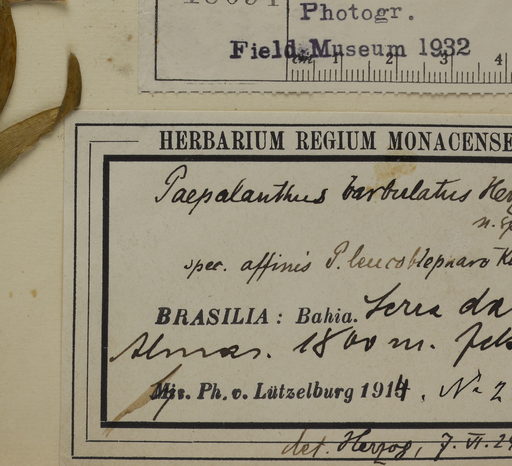 Photogr.
Field Museum 1932
cm 1 2 3 4
HERBARIUM REGIUM MONACENSE
Paepalanthus barbulatus Her
n. sp
spec. affinis P. leucoblepharo K
BRASILIA: Bahia. Serra da
Almas. 1800 m. Feb
Mis. Ph. v. Lützelburg 1914. No 2
det. Herzog, 7. VI. 24